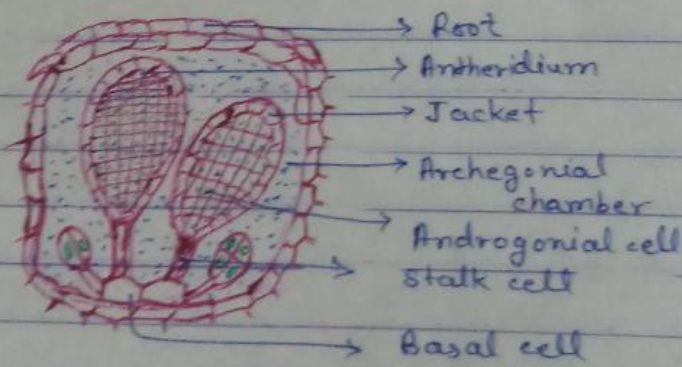 Root
Antheridium
Jacket
Archegonial
chamber
Androgonial cell
Stalk cell
Basal cell